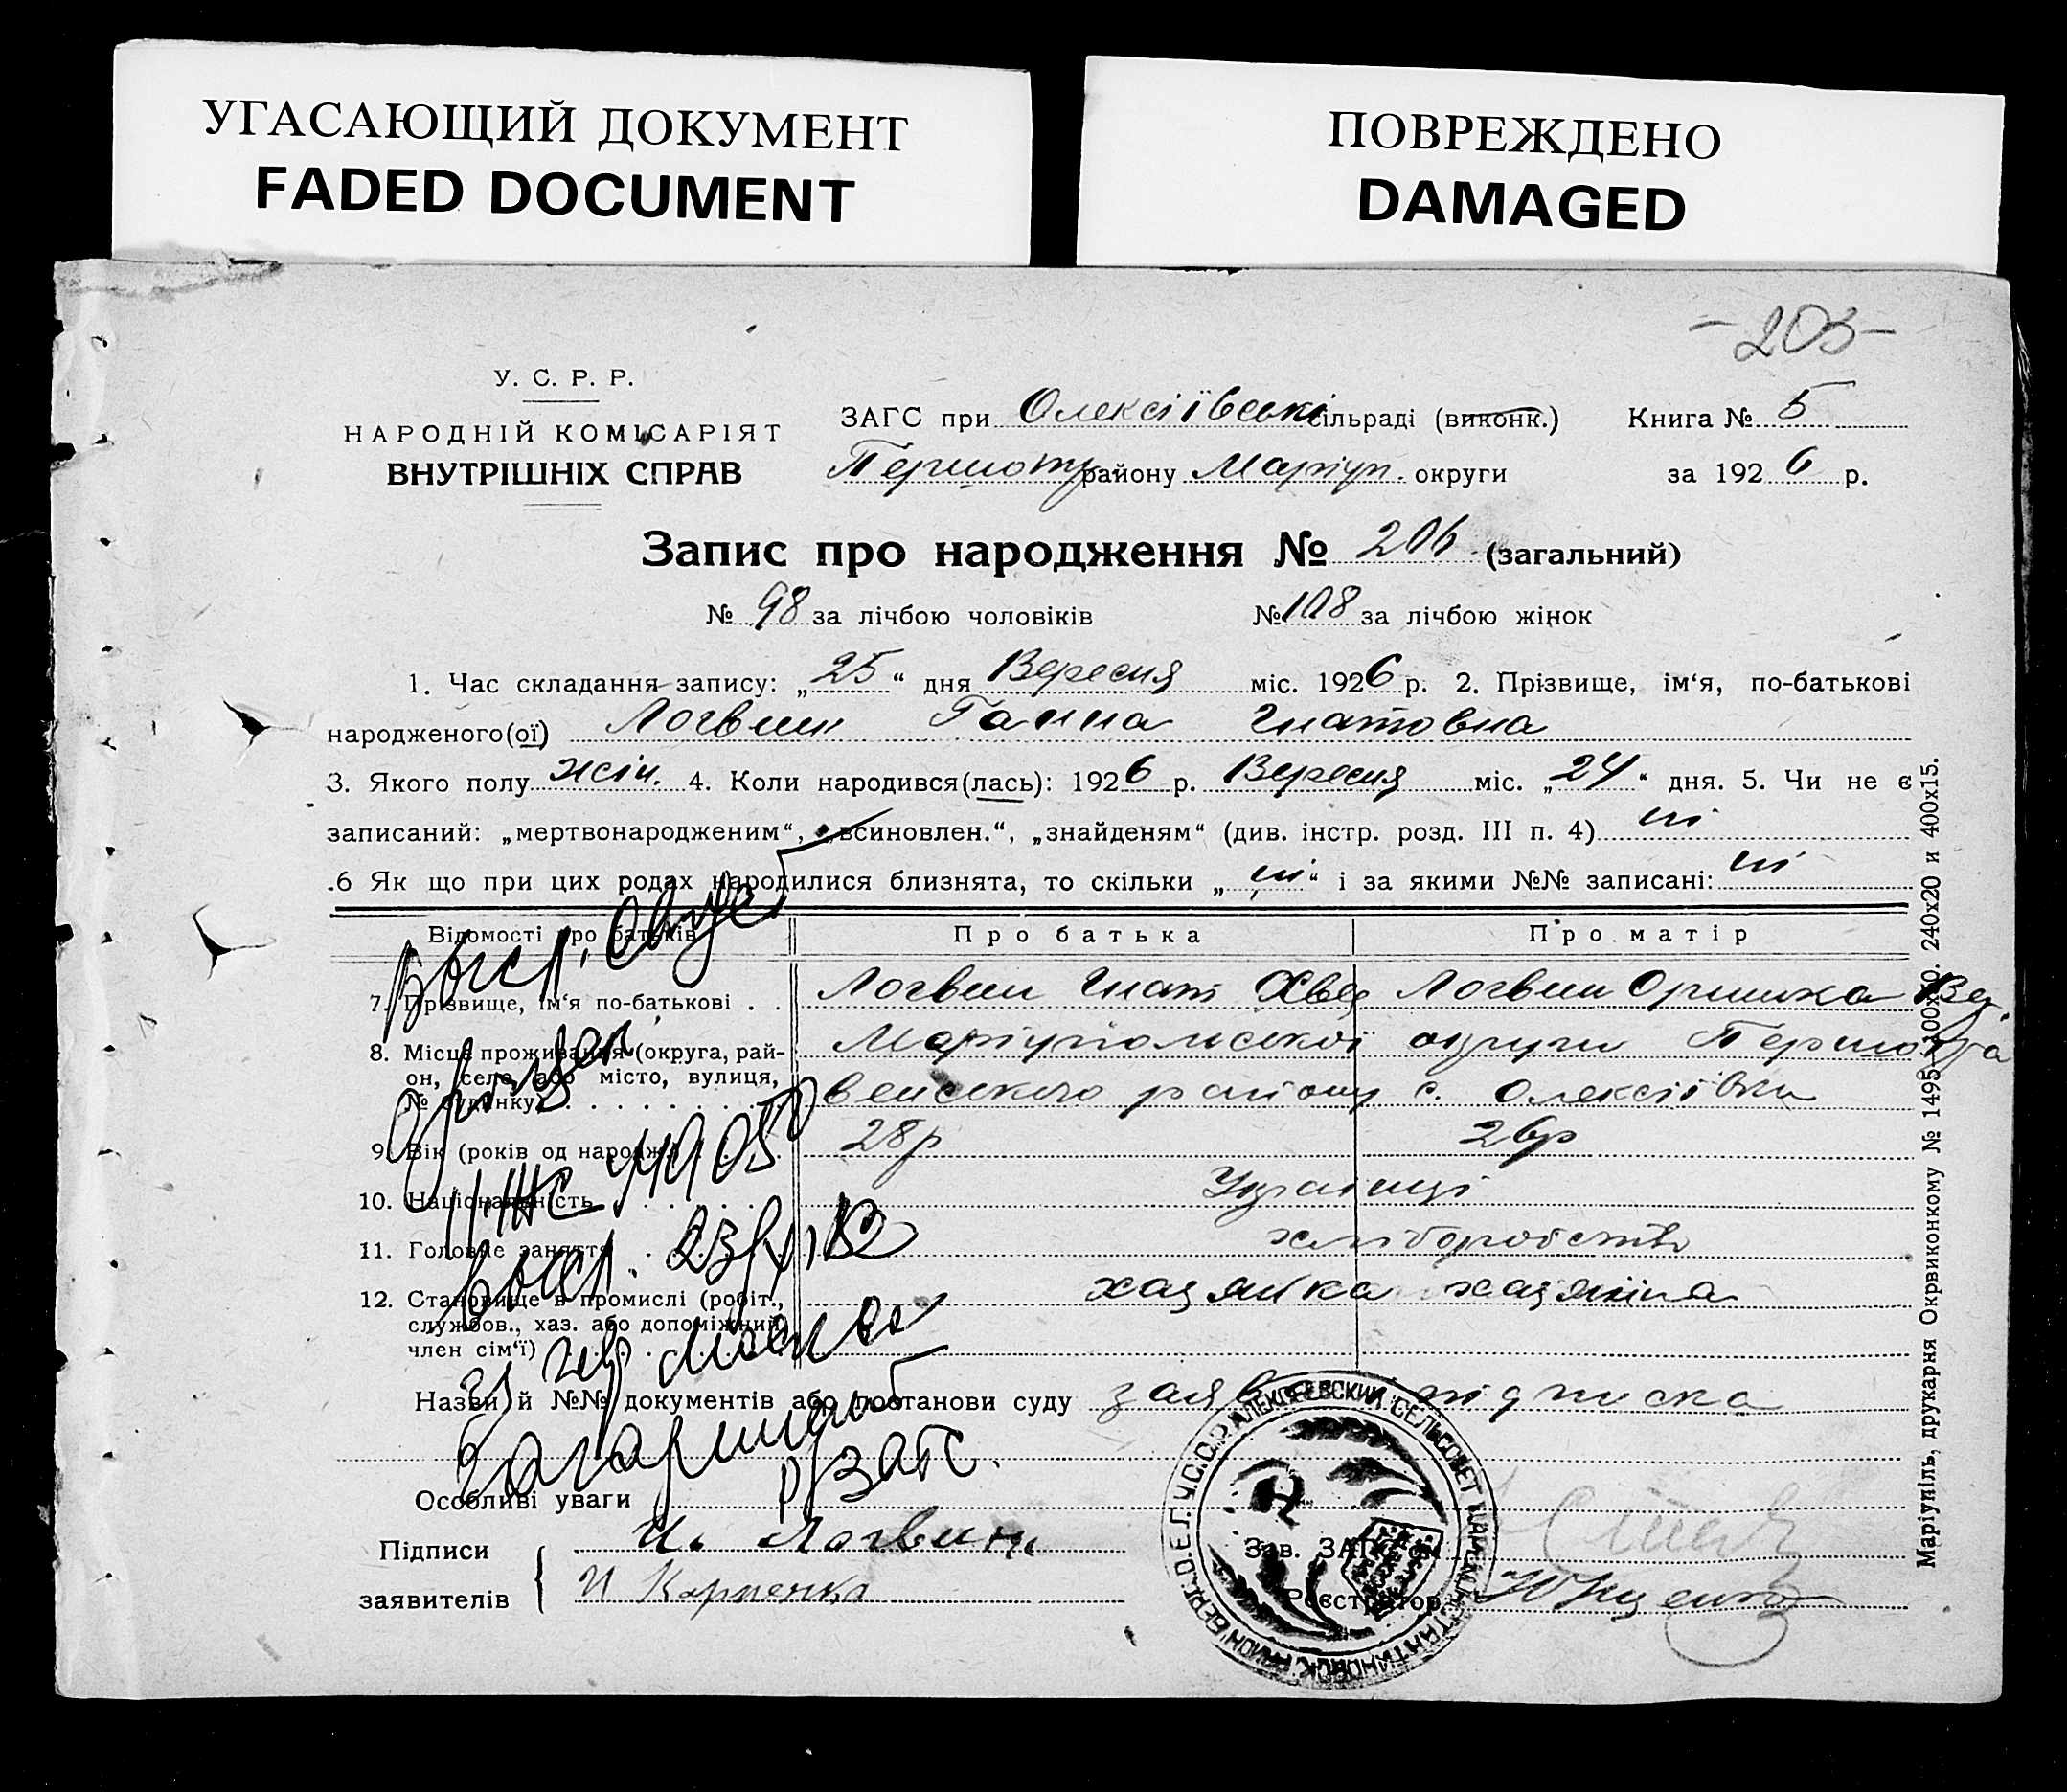 УГАСАЮЩИЙ ДОКУМЕНТ
FADED DOCUMENT
ПОВРЕЖДЕНО
DAMAGED
У. С. Р. Р.
НАРОДНІЙ КОМІСАРІЯТ
ВНУТРІШНІХ СПРАВ
ЗАГС при Олексіївські сільраді (виконк.) Книга № 5
Першотр району Маріуп. округи за 1926 р.
Запис про народження № 206 (загальний)
№ 98 за лічбою чоловіків № 108 за лічбою жінок
1. Час складання запису: „25“ дня Вересня міс. 1926 р. 2. Прізвище, ім‘я, по-батькові
народженого(ої) Логвин Ганна Гнатовна
3. Якого полу жін. 4. Коли народився(лась): 1926 р. Вересня міс. „24“ дня. 5. Чи не є
записаний: „мертвонародженим“, „всиновлен.“, „знайденям“ (див. інстр. розд. III п. 4) ні
.6 Як що при цих родах народилися близнята, то скільки „ні“ і за якими №№ записані: ні
Відомості про батьків Про батька Про матір
7. Прізвище, ім‘я по-батькові . . Логвин Гнат Хвед Логвин Оришка
8. Місце проживання (округа, рай- Маріупольської округи Першотра
он, село або місто, вулиця, венського району с. Олексіївки
№ будинку)
9. Вік (років од народж.) 28р 26р
10. Національність Українці
11. Головне заняття хліборобство
12. Становище в промислі (робіт., хазяйка хазяйна
службов., хаз. або допоміжний
член сім‘ї)
Назви й №№ документів або постанови суду заява підписка
Особливі уваги
Підписи И. Логвин Зав. ЗАГС‘ом
заявителів И Карпенко Реєстратор Юрценко
выд. свид
23/
выд.
рЗАГС.
Маріупіль, друкарня Окрвиконкому № 1495-100х50. 240х20 и 400х15.